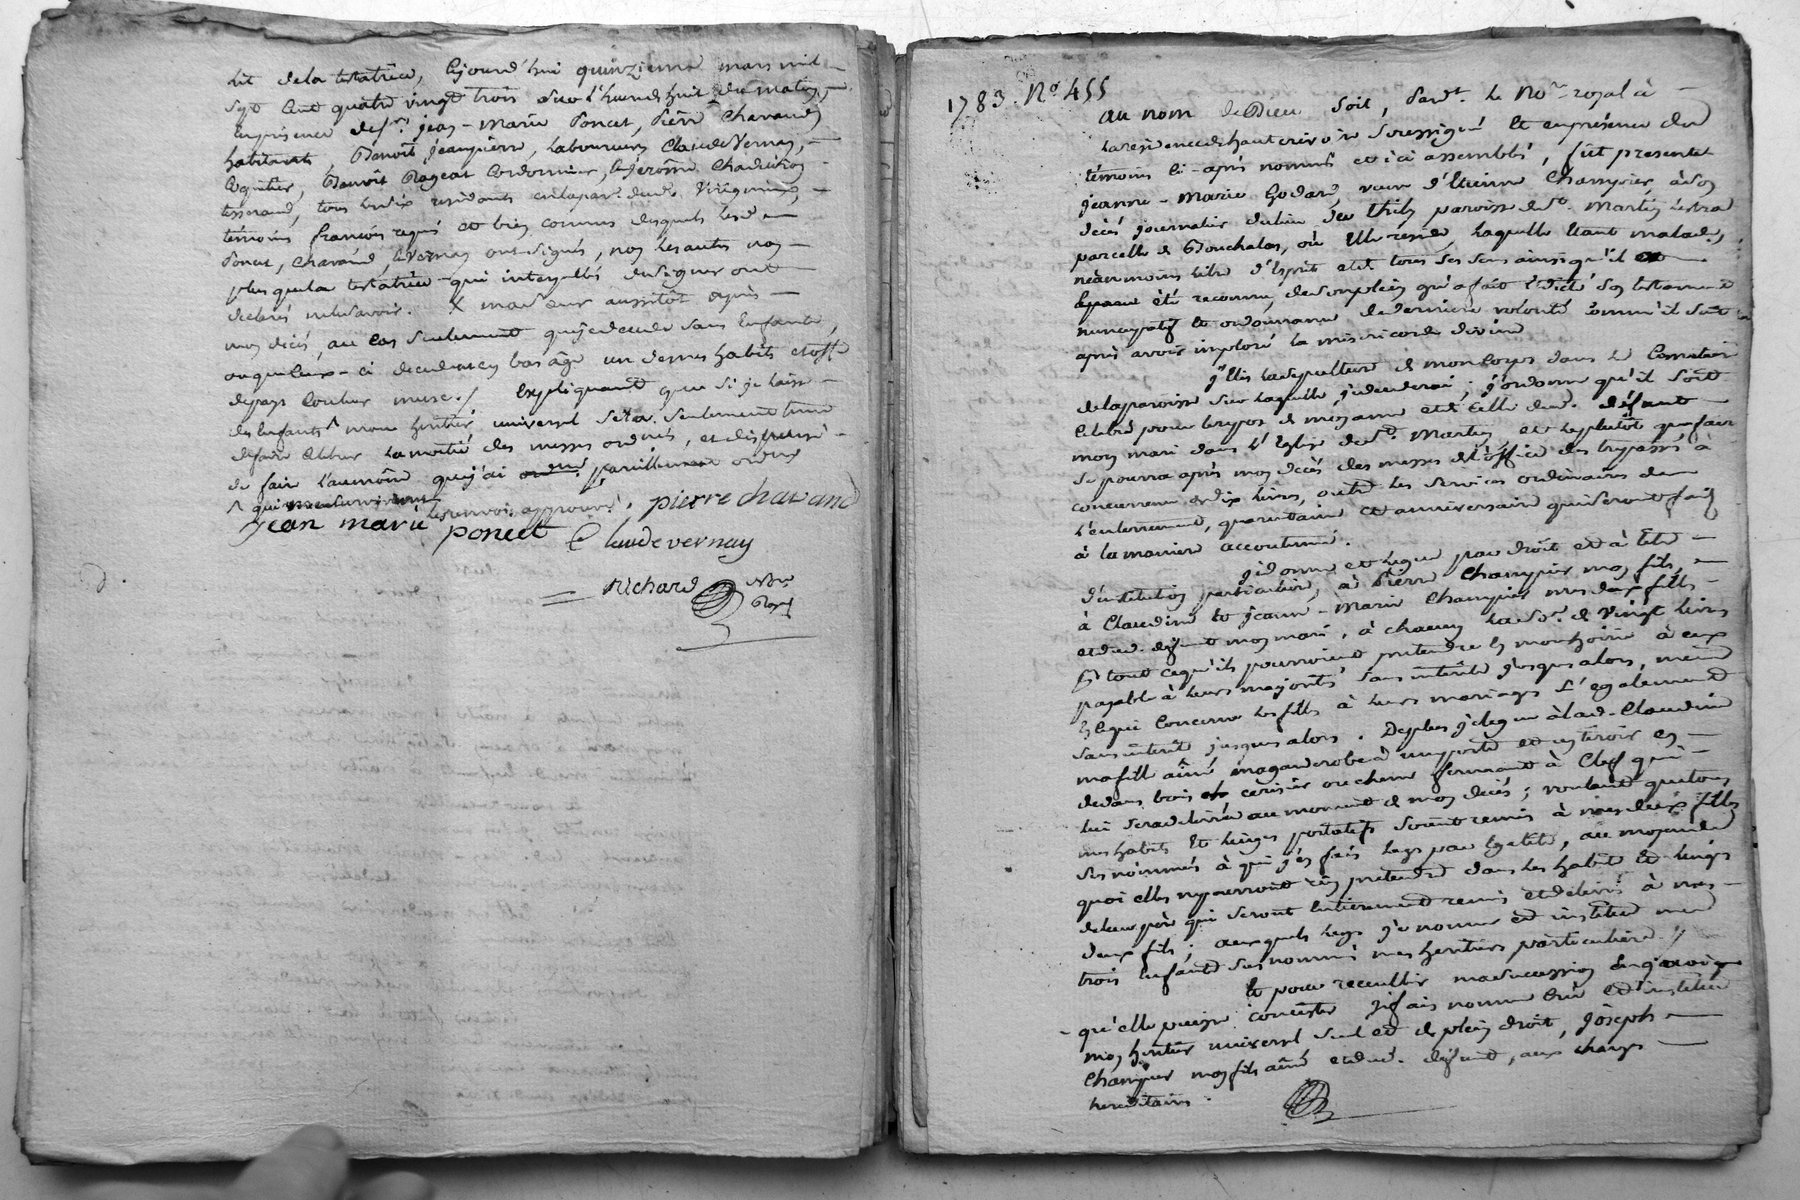 lit de la testatrice, cejourd'hui quinzieme mars mil
sept cent quatre vingt trois sur l'heure de huit du matin,
en presence de sr. jean-Marie Poncet, Pierre Chavand
habitants, Benoît jeanpierre, laboureur, Claude Vernay,
Benoît Rageat Cordonnier, & jerôme
tisserand, tous
témoins françois requis et bien connus desquels lesd
Poncet, Chavand, & Vernay ont signés, non les autres non
plus que la testatrice qui interpellés de signer ont
declarés ne le savoir.
mon décès, au cas seulement que je decede sans enfants,
ou que ceux-ci decedent en bas âge un de mes habits etoffe
de pays couleur muse ./ Expliquant que si je laisse
des enfants ^ mon heritier universel sera seulement tenu
de faire celebrer la moitié des messes ordonnés, et dispensé
de faire l'aumône que j'ai pareillement ordonné
^ qui me survivront approuvé. pierre chavand
jean marie poncet Claude vernay
Richard Nore
Royal
1783. No. 455
au nom de Dieu soit, Pardt. le Nore royal à
la residence de hauterivoire soussigné et en présence des
témoins ci-après nommés et ici assemblés, fut presente
jeanne-Marie Godard, veuve d'Etienne Champier, à son
décès journalier du lieu de Thily paroisse de St. Martin Lestra
parcelle de Bouchalas, où elle reside, laquelle étant malade,
néanmoins libre d'esprit et de tous ses sens ainsi qu'il
a été reconnu, de son plein gré a fait & dicté son testament
nuncupatif et ordonnance de derniere volonté comme il suit
après avoir imploré la misericorde divine
j'elis la sepulture de mon corps dans le Cimetiere
de la paroisse sur laquelle je decederai; j'ordonne qu'il soit
celebré pour le repos de mon ame et de celle dud. défunt
mon mari dans l'Eglise de St. Martin et le plutôt que faire
se pourra après mon décès des messes de l'office des trepassés à
concurrence de dix livres, outre les services ordinaires de
l'enterrement, quarantaine et anniversaire qui seront faits
à la maniere accoutumée.
je donne et legue par droit et à titre
d'institution particuliere, à Pierre Champier mon fils,
à Claudine & jeanne-Marie Champier mes deux filles
et dud. defunt mon mari, à chacun la de. de vingt livres
tout ce qu'ils pourroient pretendre en mon hoirie à eux
payable à leurs majorités sans interêts jusqu'alors, même
en ce qui concerne les filles à leurs mariages & également
sans interêt jusqu'alors. De plus je legue à lad. Claudine
ma fille aînée, ma garderobe à une porte et un tiroir en
dedans, bois cerisier ou chene fermant à clef qui
lui sera delivrée au moment de mon décès; voulant que tous
mes habits et linges portatifs soient remis à mes deux filles
susnommées à qui j'en fais legs par egalité, au moyen de
quoi elles ne pourront rien pretendre dans les habits et linges
de leur père qui seront entierement remis et delivrés à mes
deux fils; auxquels legs je nomme et institue mes
trois enfants susnommés mes heritiers particuliers ./
Et pour recueillir ma succession en quoi
qu'elle puisse consister je fais nomme crée et institue
mon heritier universel seul et de plein droit, joseph
Champier mon fils aîné et dud. defunt, aux charges
hereditaires.